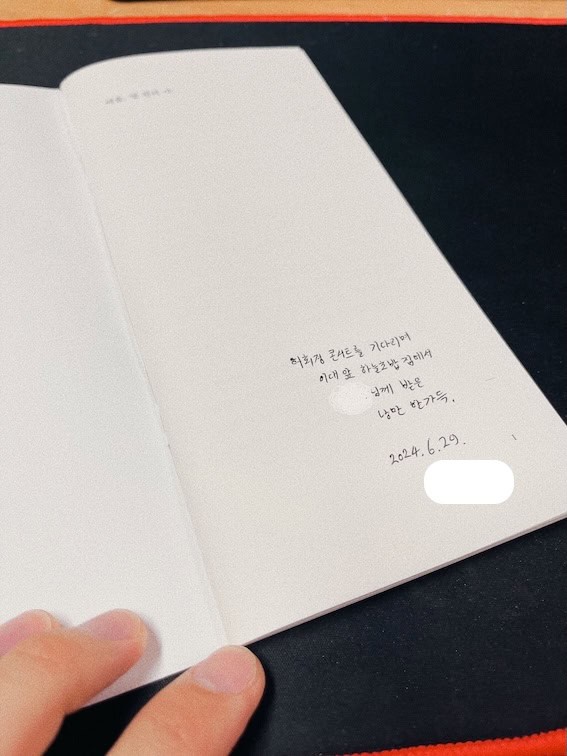 허회경 콘서트를 기다리며
이대 앞 하늘초밥집에서
님께 받은
낭만 한가득.
2024.6.29.